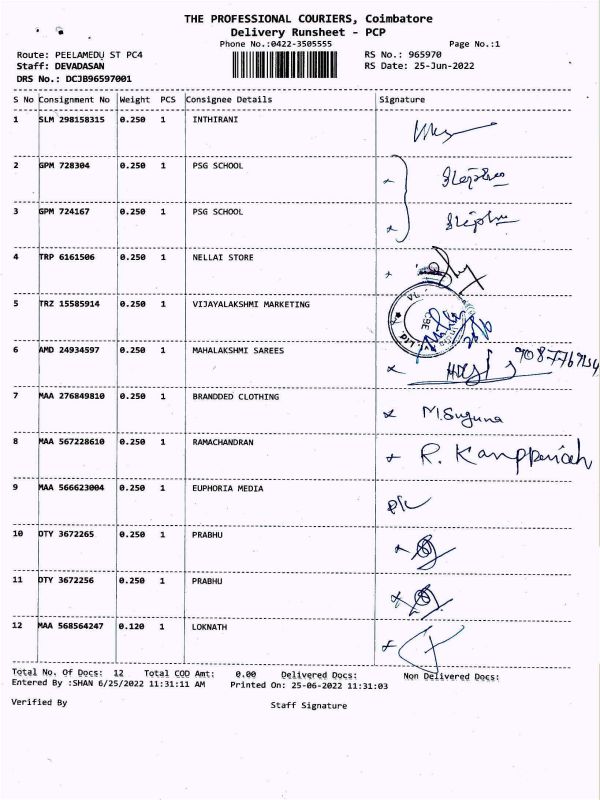 THE PROFESSIONAL COURIERS, Coimbatore
Delivery Runsheet - PCP
Phone No.:0422-3505555 Page No.:1
Route: PEELAMEDU ST PC4 RS No.: 965970
Staff: DEVADASAN RS Date: 25-Jun-2022
DRS No.: DCJB96597001
S No Consignment No Weight PCS Consignee Details Signature
1 SLM 298158315 0.250 1 INTHIRANI
2 GPM 728304 0.250 1 PSG SCHOOL
3 GPM 724167 0.250 1 PSG SCHOOL
4 TRP 6161506 0.250 1 NELLAI STORE
5 TRZ 15585914 0.250 1 VIJAYALAKSHMI MARKETING
6 AMD 24934597 0.250 1 MAHALAKSHMI SAREES
7 MAA 276849810 0.250 1 BRANDDED CLOTHING M.Suguna
8 MAA 567228610 0.250 1 RAMACHANDRAN
9 MAA 566623004 0.250 1 EUPHORIA MEDIA
10 DTY 3672265 0.250 1 PRABHU
11 DTY 3672256 0.250 1 PRABHU
12 MAA 568564247 0.120 1 LOKNATH
Total No. Of Docs: 12 Total COD Amt: 0.00 Delivered Docs: Non Delivered Docs:
Entered By :SHAN 6/25/2022 11:31:11 AM Printed On: 25-06-2022 11:31:03
Verified By Staff Signature